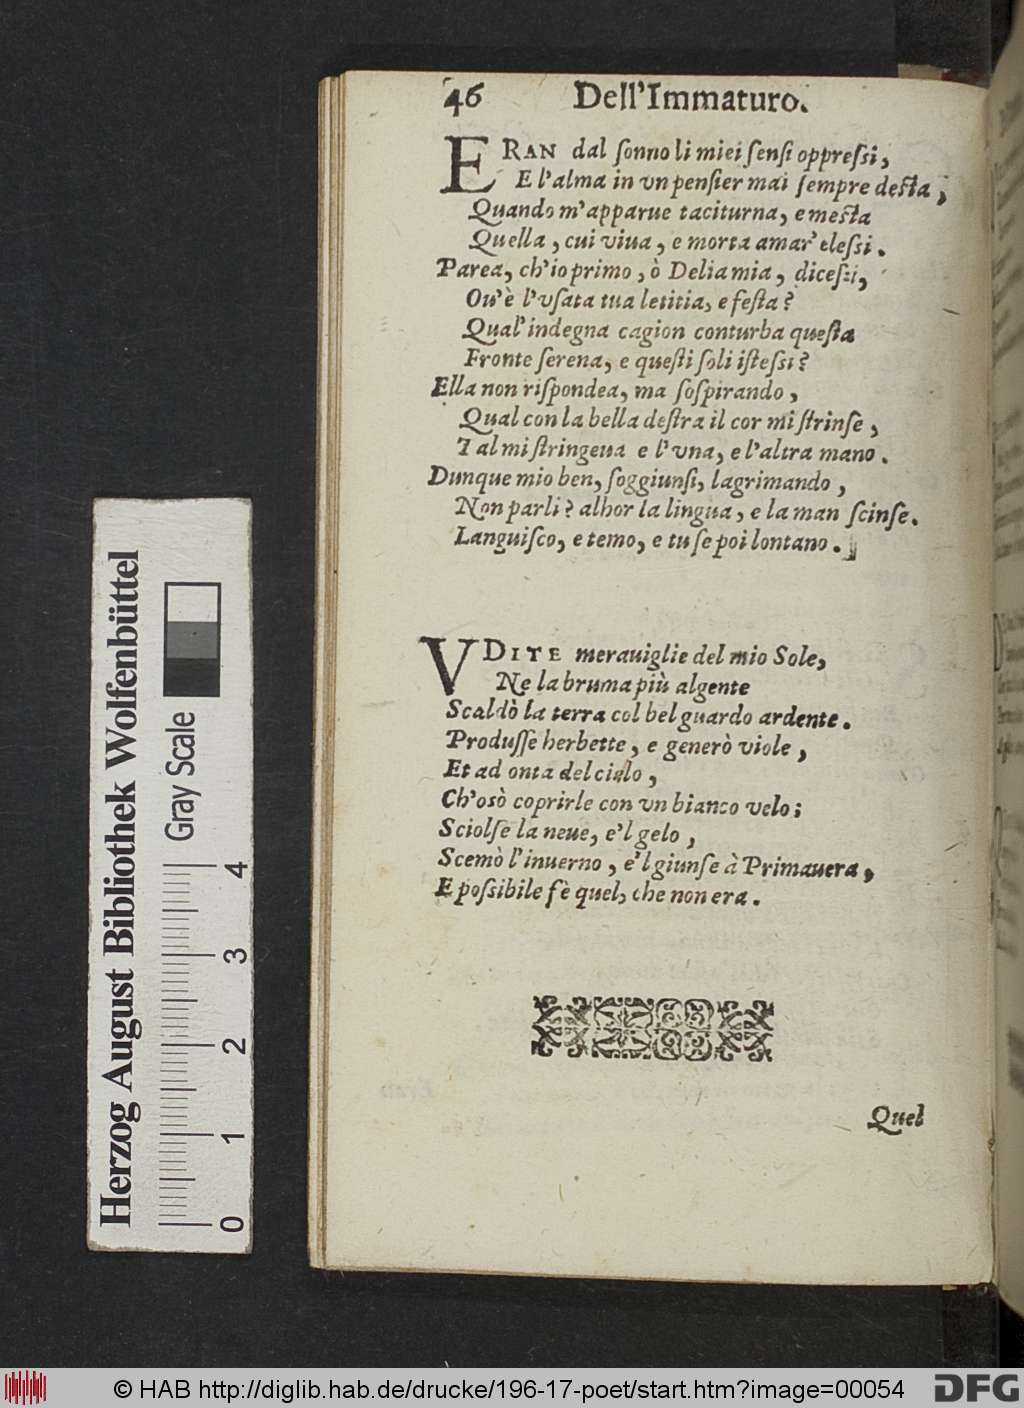 46 Dell'Immaturo.
ERAN dal ſonno li miei ſenſi oppreſsi,
E l'alma in vn penſier mai ſempre deſta,
Quando m'apparue taciturna, e meſta
Quella, cui viua, e morta amar' eleſsi.
Parea, ch'io primo, ò Delia mia, diceſsi,
Ou'è l'vſata tua letitia, e feſta?
Qual'indegna cagion conturba queſta
Fronte ſerena, e queſti ſoli iſteſsi?
Ella non riſpondea, ma ſoſpirando,
Qual con la bella deſtra il cor mi ſtrinſe,
Tal mi ſtringeua e l'vna, e l'altra mano.
Dunque mio ben, ſoggiunſi, lagrimando,
Non parli? alhor la lingua, e la man ſcinſe.
Languiſco, e temo, e tu ſe poi lontano.
VDITE merauiglie del mio Sole,
Ne la bruma più algente
Scaldò la terra col bel guardo ardente.
Produſſe herbette, e generò viole,
Et ad onta del cielo,
Ch'osò coprirle con vn bianco velo;
Sciolſe la neue, e'l gelo,
Scemò l'inuerno, e'l giunſe à Primauera,
E poſsibile fè quel, che non era.
Quel
Herzog August Bibliothek Wolfenbüttel
Gray Scale
0 1 2 3 4
© HAB http://diglib.hab.de/drucke/196-17-poet/start.htm?image=00054
DFG